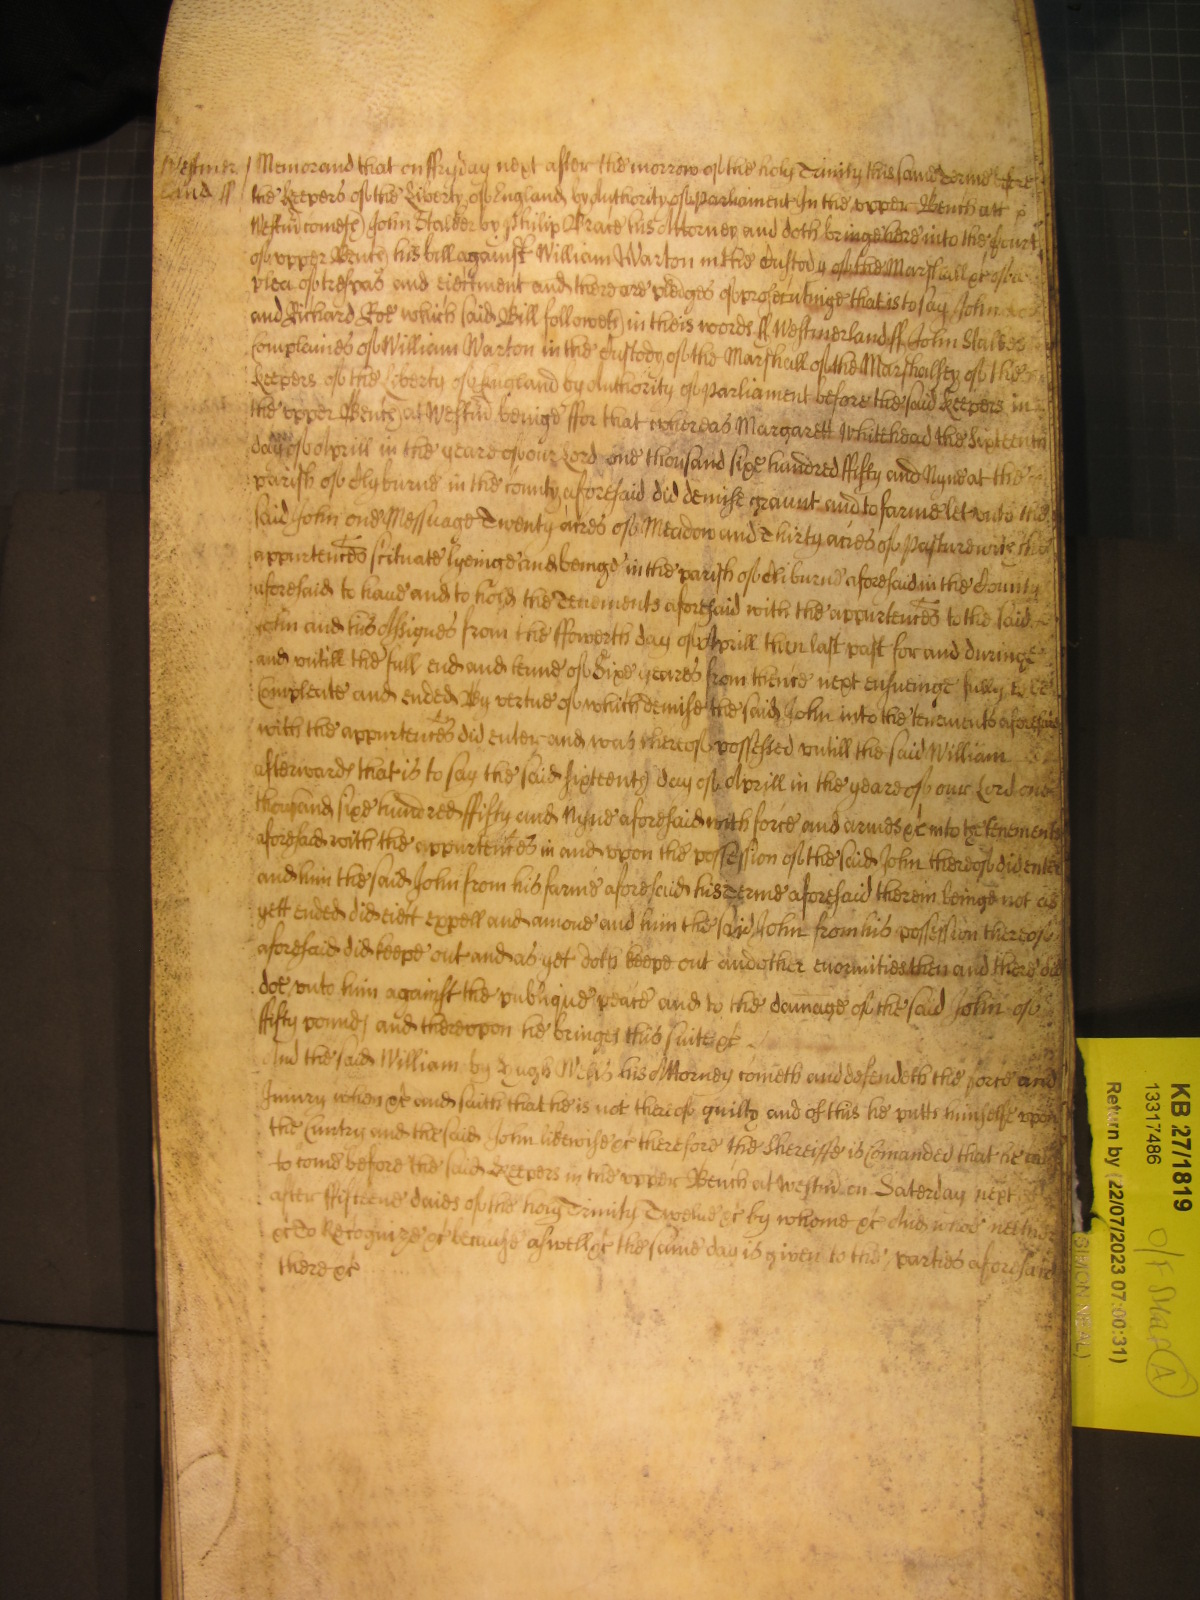 Westmer
land ss
Memorand that on ffryday next after the morrow of the holy Trinity this same Terme before
the keepers of the liberty of England by authority of Parliament In the upper Bench att
Westm cometh John Stalker by Philip Grace his Attorney and doth bringe here into the Court
of upper Bench his bill against William Warton in the Custody of the Marshall &c of a
plea of trespas and eiectment and there are pledges of prosecutinge that is to say John
and Richard Roe which said Bill followeth in theis words ss Westmerland ss John
complaines of William Warton in the Custody of the Marshall of the Marshalsey of the
keepers of the liberty of England by Authority of Parliament before the said keepers in
the upper Bench at Westm beinge ffor that whereas Margarett Whitehead the sixteenth
day of Aprill in the yeare of our Lord one thousand sixe hundred ffifty and Nyne at the
parish of Clyburne in the county aforesaid did demise graunt and to farme let unto the
said John one Messuage Twenty acres of Meadow and Thirty acres of Pasture with the
appurtences scituate lyeinge and beinge in the parish of Cliburne aforesaid in the County
aforesaid to have and to hold the Tenements aforesaid with the appurtences to the said
John and his Assignes from the ffowerth day of Aprill then last past for and duringe
and untill the full end and terme of Sixe yeares from thence next ensueinge fully to be
Compleate and ended By vertue of which demise the said John into the tenements aforesaid
with the appurtences did enter and was thereof possessed untill the said William
afterwards that is to say the said sixteenth day of Aprill in the yeare of our Lord one
thousand sixe hundred ffifty and Nyne aforesaid with force and armes &c into the tenements
aforesaid with the appurtences in and upon the possession of the said John thereof did enter
and him the said John from his farme aforesaid his Terme aforesaid therein beinge not as
yett ended did eiect expell and amove and him the said John from his possession thereof
aforesaid did keepe out and as yet doth keepe out and other enormities then and there did
doe unto him against the publique peace and to the damage of the said John of
ffifty pounds and thereupon he brings this suite &c
And the said William by Hugh his Attorney cometh and defendeth the force and
Iniury when &c and saith that he is not thereof guilty and of this he putts himselfe upon
the Cuntry and the said John likewise &c therefore the Shereiffe is comanded that he cause
to come before the said keepers in the upper Bench at Westm on Saterday next
after ffifteene daies of the holy Trinity Twelve &c by whome &c And who neither
&c To Recognize &c because aswell &c the same day is given to the parties aforesaid
there &c
KB 27/1819
13317486
Return by (22/07/2023 07:00:31)
(SIMON NEAL)
O/F Shelf A